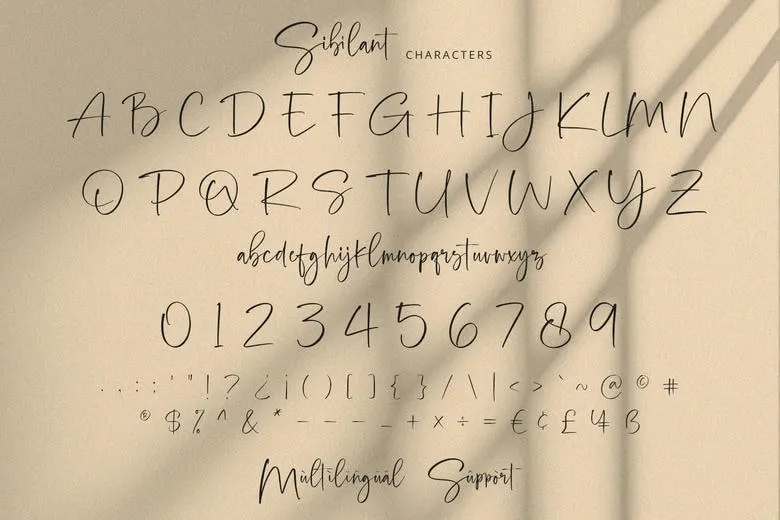 Sibilant CHARACTERS
A B C D E F G H I J K L M N
O P Q R S T U V W X Y Z
abcdefghijklmnopqrstuvwxyz
0 1 2 3 4 5 6 7 8 9
. , : ; ' " ! ? ¿ ¡ ( ) [ ] { } / \ | < > ` ~ @ © #
® $ % ^ & * - – — _ + × ÷ = € ¢ £ ¥ ß
Mùltilíngüàl Sûppört